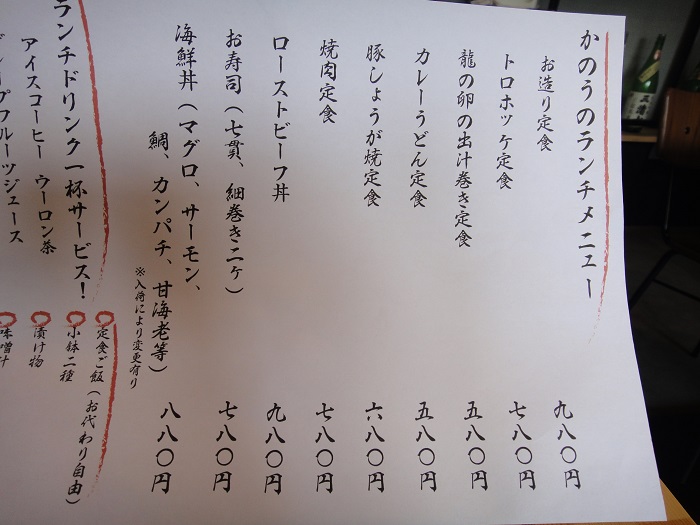 かのうのランチメニュー
お造り定食 九八〇円
トロホッケ定食 七八〇円
龍の卵の出汁巻き定食 五八〇円
カレーうどん定食 五八〇円
豚しょうが焼定食 六八〇円
焼肉定食 七八〇円
ローストビーフ丼 九八〇円
お寿司（七貫、細巻き二ケ） 七八〇円
海鮮丼（マグロ、サーモン、
鯛、カンパチ、甘海老等） 八八〇円
※入荷により変更有り
ランチドリンク一杯サービス！
アイスコーヒー ウーロン茶
グレープフルーツジュース
定食ご飯（お代わり自由）
小鉢二種
漬け物
味噌汁